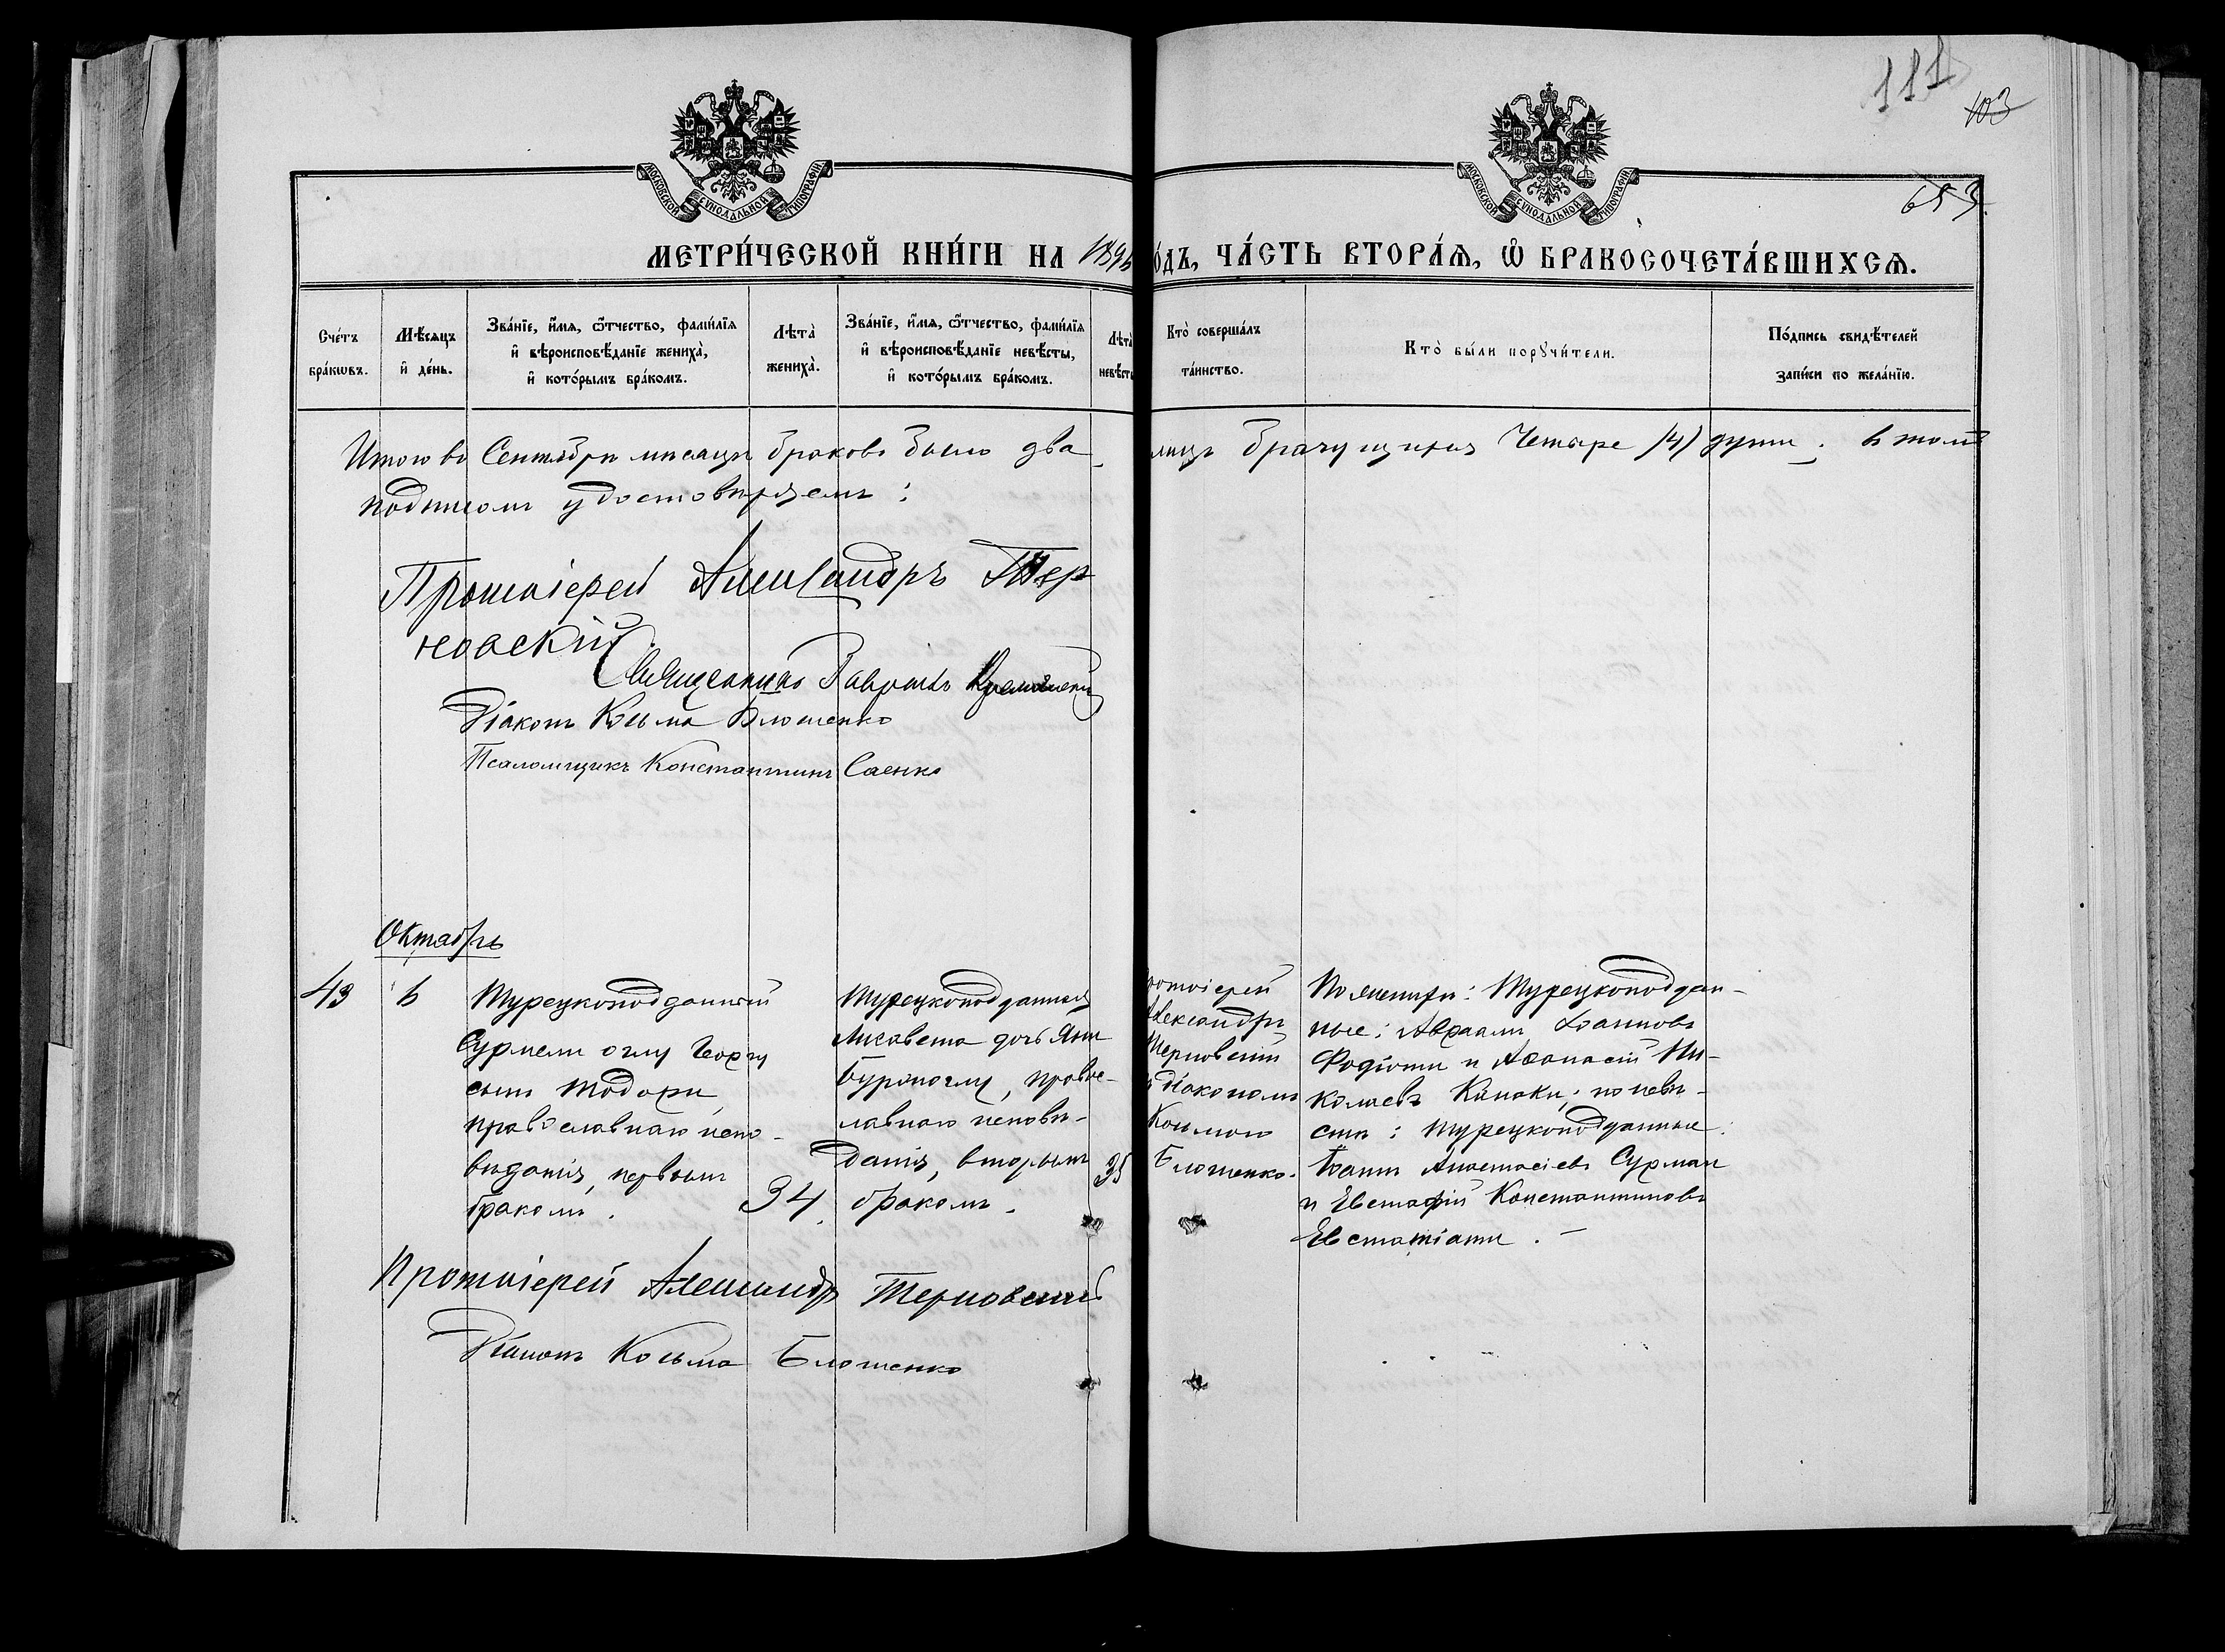 111
103
653
МОСКОВСКОЙ СѴНОДАЛЬНОЙ ТИПОГРАФІИ
МОСКОВСКОЙ СѴНОДАЛЬНОЙ ТИПОГРАФІИ
МЕТРИ́ЧЕСКОЙ КНИ́ГИ НА 189 О́ДЪ, ЧА́СТЬ ВТОРА́Ѧ, Ѽ БРАКОСОЧЕТА́ВШИХСѦ.
Сче́тъ бра́кѡвъ.
Мѣ́сѧцъ и҆ де́нь.
Зва́нїе, и҆́мѧ, ѻ҆́тчество, фами́лїѧ и҆ вѣроисповѣ́данїе жениха̀, и҆ кото́рымъ бра́комъ.
Лѣта̀ жениха̀.
Зва́нїе, и҆́мѧ, ѻ҆́тчество, фами́лїѧ и҆ вѣроисповѣ́данїе невѣ́сты, и҆ кото́рымъ бра́комъ.
Лѣта̀ невѣ́сты
Кто̀ соверша́лъ та́инство.
Кто̀ бы́ли порꙋчи́тели.
По́дпись свидѣ́телей за́писи по жела́нїю.
Итого въ Сентябрѣ мѣсяцѣ браковъ было два, лицъ брачущихся четыре /4/ души. въ томъ
подписомъ удостовѣряемъ:
Протоіерей Александръ Тер
новскій
Священникъ
Діаконъ Косьма Блошенко
Псаломщикъ Константинъ Саенко
Октябрь
43
6
Турецкоподданный
Сурмели оглу Георгу
сынъ Тодори,
православнаго испо-
вѣданія, первымъ
бракомъ.
34.
Турецкоподданная
Лисавета дочь Яни
Буюкоглу, правос-
лавнаго исповѣ-
данія, вторымъ
бракомъ.
35
ротоіерей
Александръ
Терновскій
съ діакономъ
Космою
Блошенко.
По женихѣ: Турецкоподдан-
ные: Авраамъ Іоанновъ
Фодіоти и Аѳанасій Ни-
колаевъ Кинаки; по невѣ-
стѣ: турецкоподданные:
Іоаннъ Анастасіевъ Сурман
и Евстафій Константиновъ
Евстатіати. —
Протоіерей Александръ Терновскій
Діаконъ Косьма Блошенко